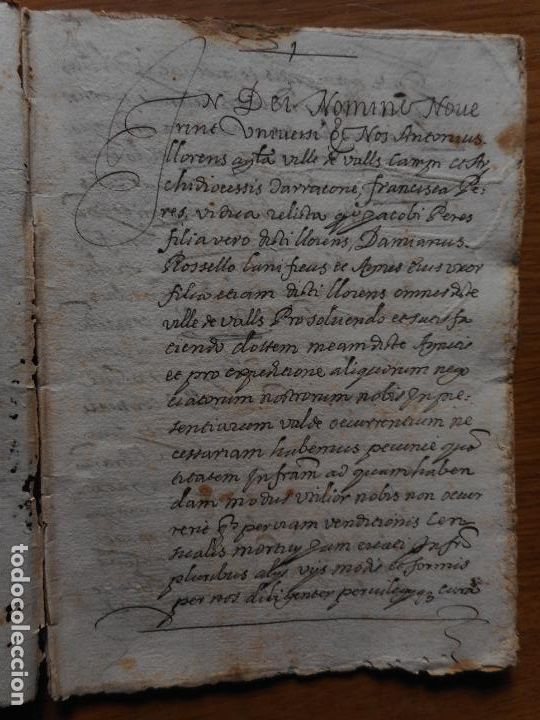 1
IN Dei Nomine Nove
rint Universi q Nos Antonius
llorens ville de valls Campi et Ar
chidiocessis Tarracone, francisca Pe
res, vidua relicta q Jacobi Peres
filia vero dicti llorens, Damianus
Rossello lanifieus et Agnes Eius uxor
filia etiam dicti llorens omnes dicte
ville de valls Pro solvendo et satis fa
ciendo dottem meam dicte Agnetis
et pro expeditione aliquorum nego
ciatorum nostrorum nobis In pre
sentiarum valde occurrentium ne
cessariam habemus pecunie quan
titatem Infram ad quam haben
dam modus utilior nobis non ocur
rerit per viam venditionis Cen
sualis mortuy Jam creati Infra
pluribus alys vys modis et formis
per nos diligenter cura
todocoleccion
todocoleccion.net